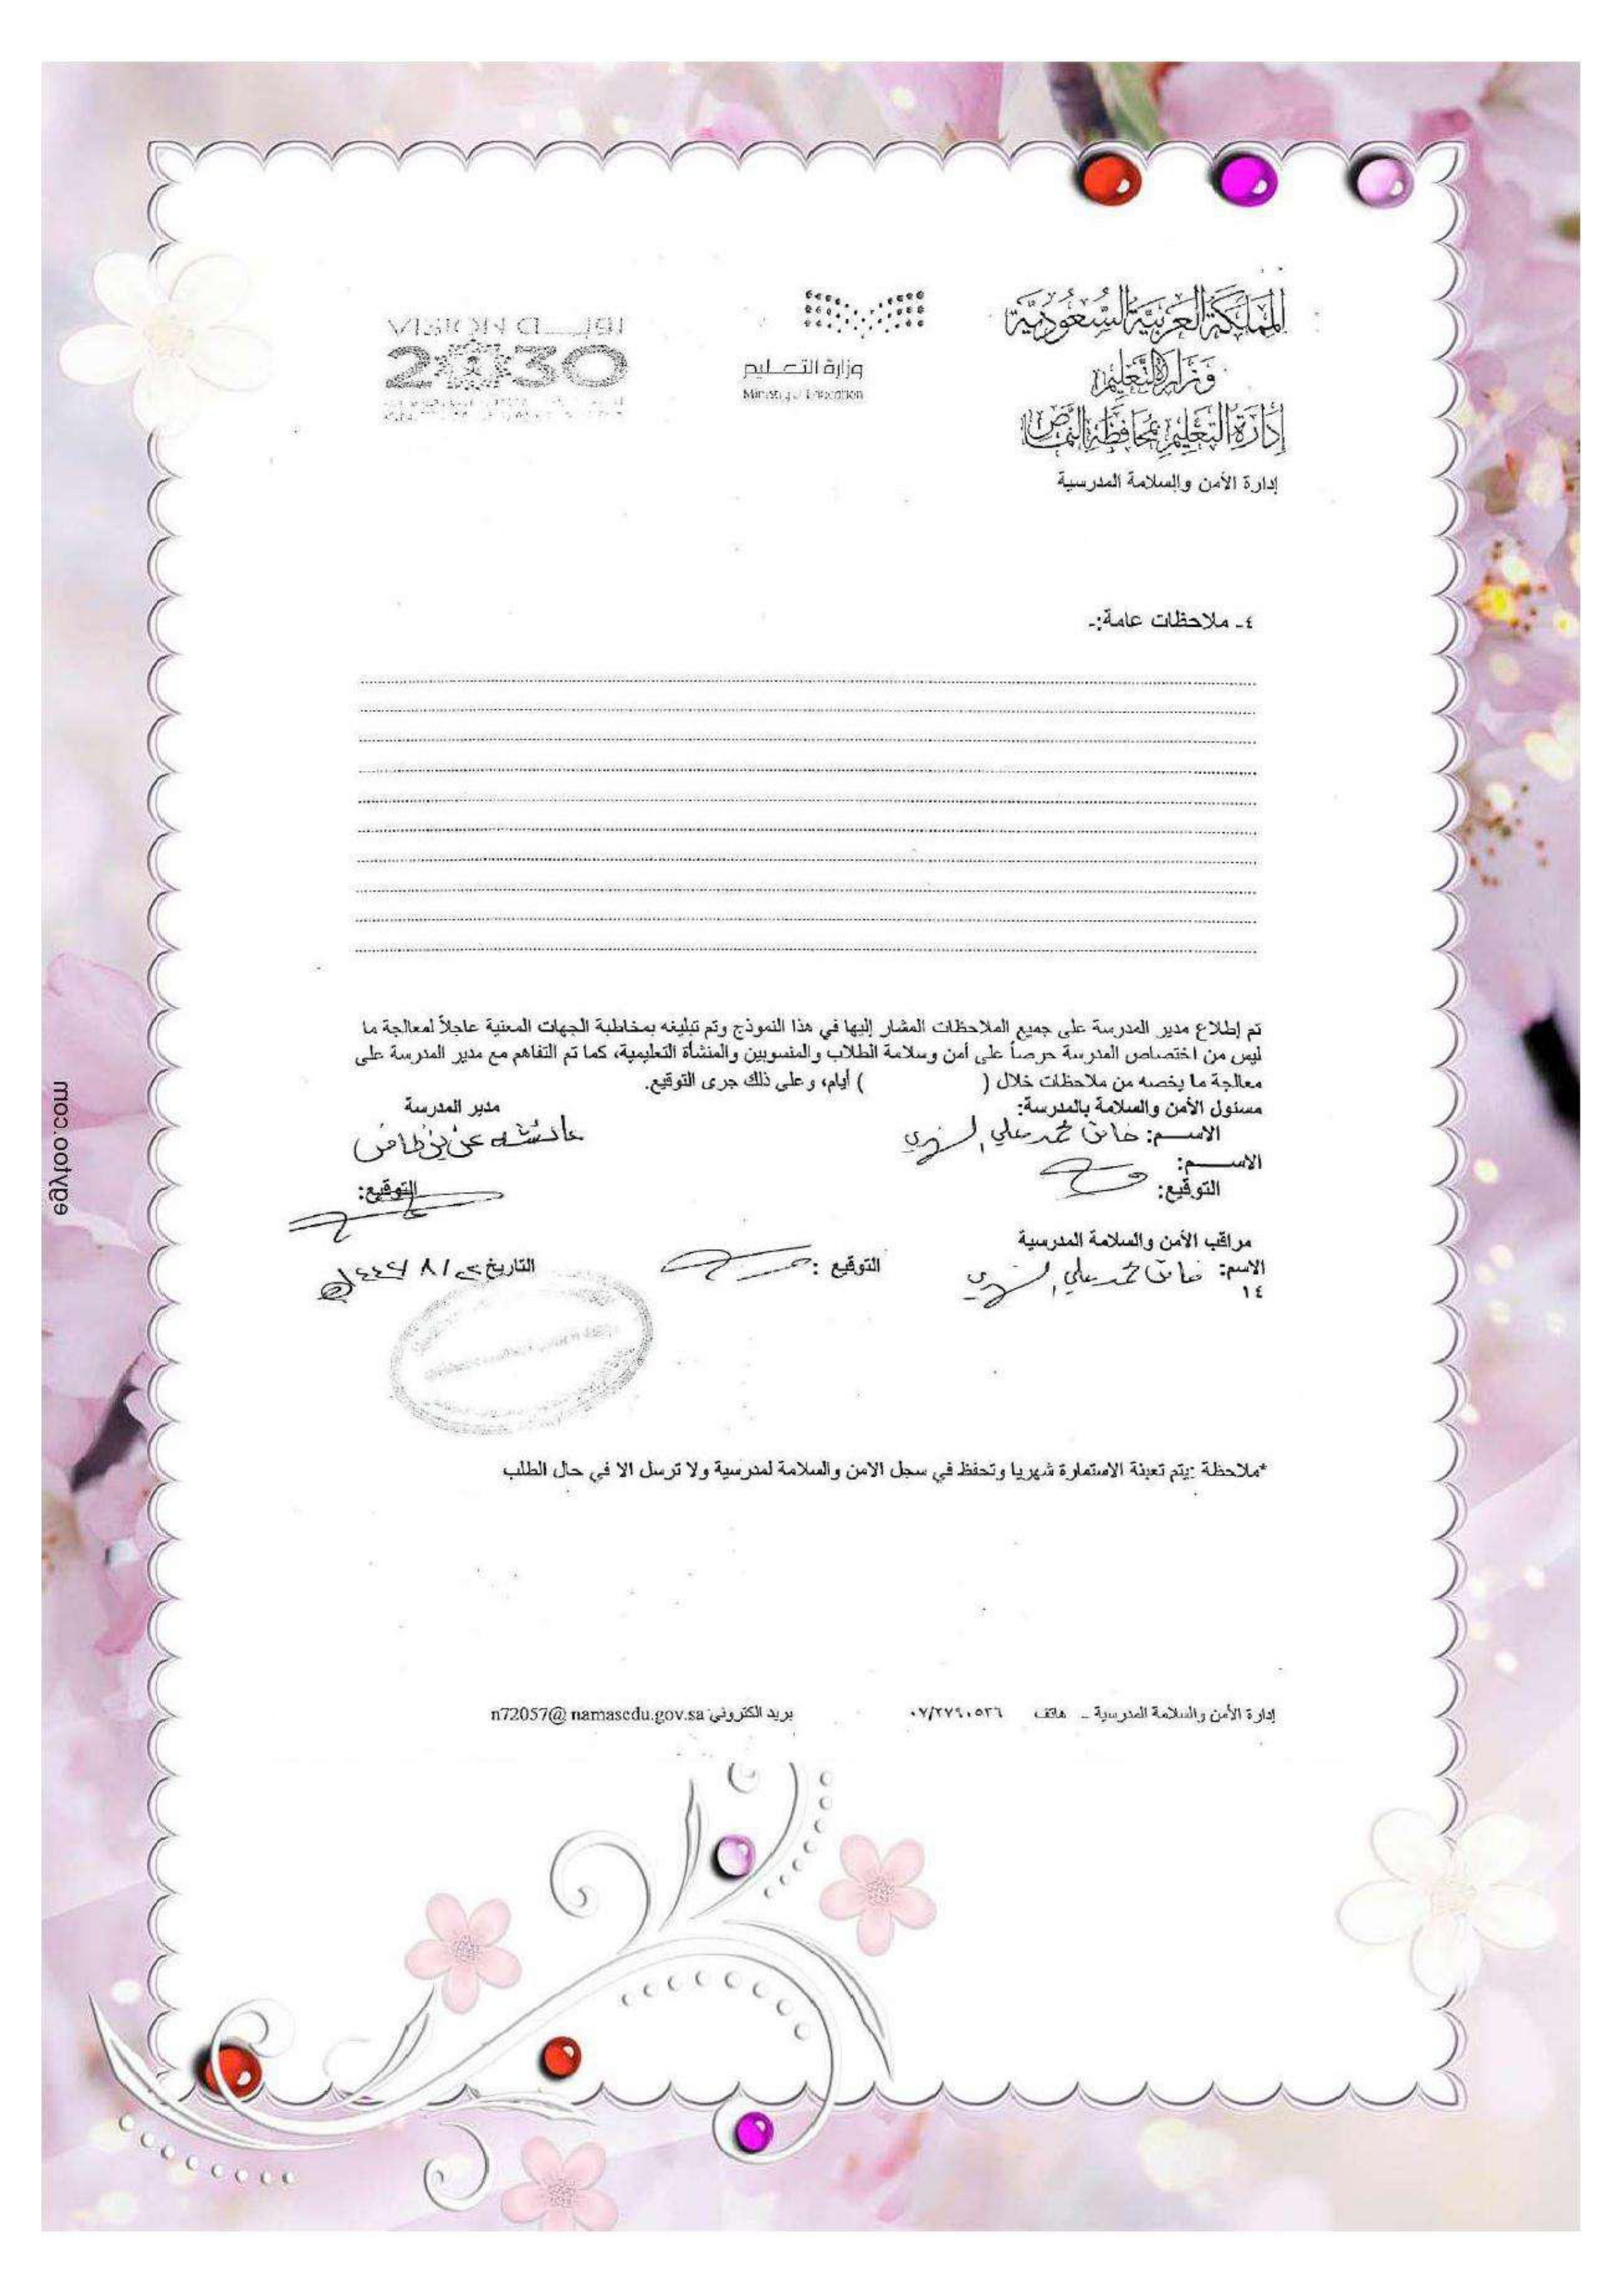 المملكة العربية السعودية
وزارة التعليم
إدارة التعليم بمحافظة النماص
إدارة الأمن والسلامة المدرسية
وزارة التعليم
Ministry of Education
VISION رؤية
2030
٤- ملاحظات عامة:-
تم إطلاع مدير المدرسة على جميع الملاحظات المشار إليها في هذا النموذج وتم تبليغه بمخاطبة الجهات المعنية عاجلاً لمعالجة ما
ليس من اختصاص المدرسة حرصاً على أمن وسلامة الطلاب والمنسوبين والمنشأة التعليمية، كما تم التفاهم مع مدير المدرسة على
معالجة ما يخصه من ملاحظات خلال ( ) أيام، وعلى ذلك جرى التوقيع.
مسئول الأمن والسلامة بالمدرسة: مدير المدرسة
الاســـم: محمد علي الشهري عائشه
الاســـم:
التوقيع: التوقيع:
مراقب الأمن والسلامة المدرسية
الاسم: محمد علي الشهري التوقيع : التاريخ
١٤
*ملاحظة :يتم تعبئة الاستمارة شهريا وتحفظ في سجل الامن والسلامة لمدرسية ولا ترسل الا في حال الطلب
إدارة الأمن والسلامة المدرسية – هاتف ٠٧/٢٧٩٠٥٣٦ بريد الكتروني n72057@ namasedu.gov.sa
egytoo.com